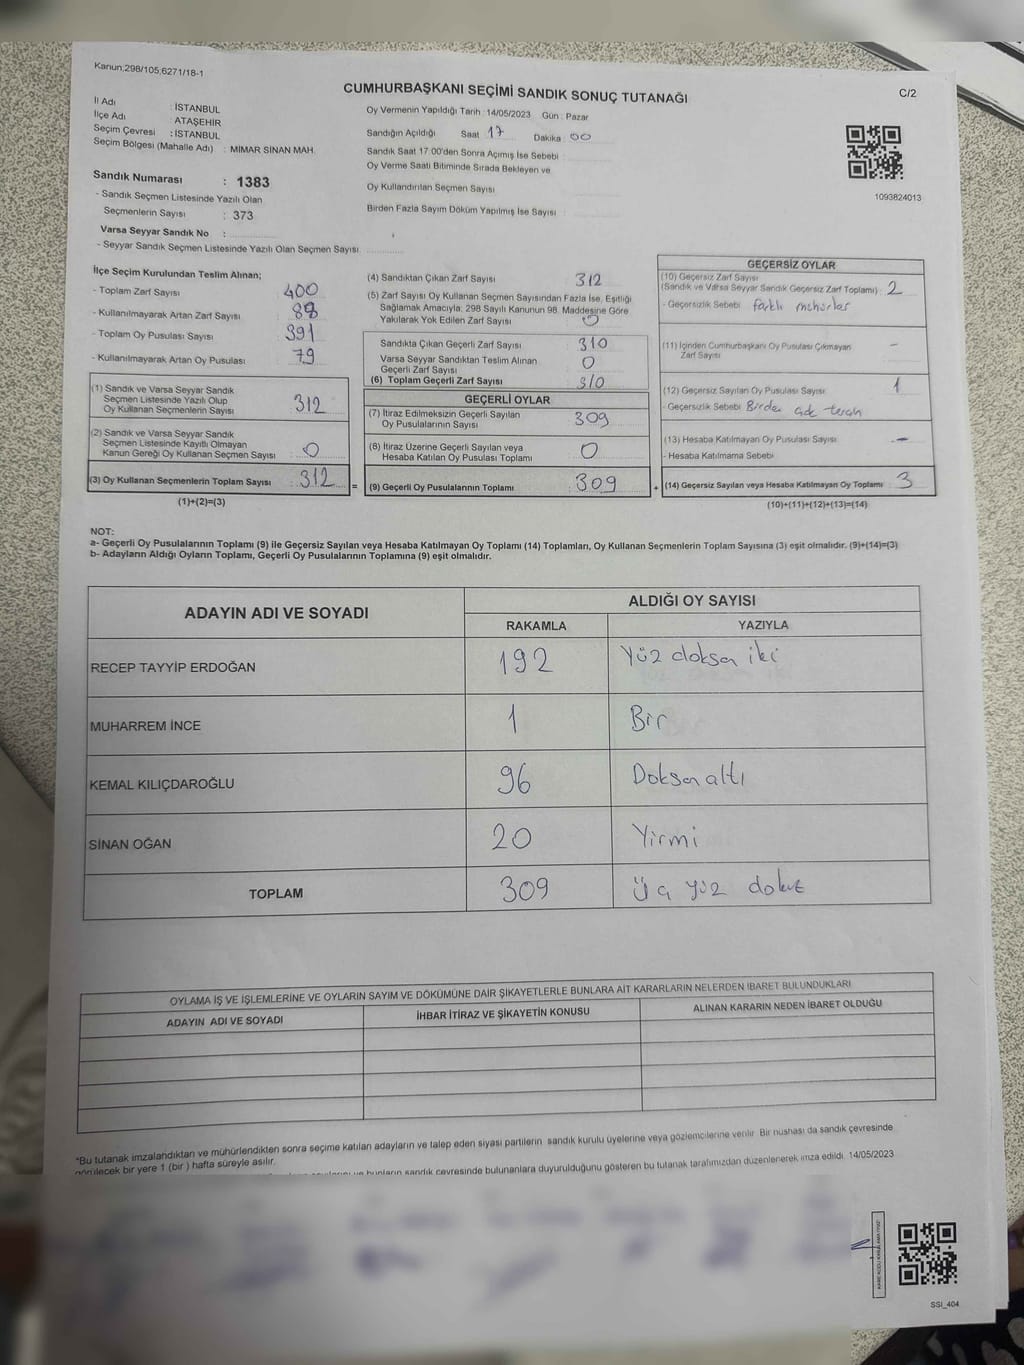 Kanun;298/105;6271/18-1
CUMHURBAŞKANI SEÇİMİ SANDIK SONUÇ TUTANAĞI
C/2
İl Adı : İSTANBUL
İlçe Adı : ATAŞEHİR
Seçim Çevresi : İSTANBUL
Seçim Bölgesi (Mahalle Adı) : MİMAR SİNAN MAH.
Sandık Numarası : 1383
- Sandık Seçmen Listesinde Yazılı Olan
Seçmenlerin Sayısı : 373
Varsa Seyyar Sandık No :
- Seyyar Sandık Seçmen Listesinde Yazılı Olan Seçmen Sayısı
Oy Vermenin Yapıldığı Tarih : 14/05/2023 Gün : Pazar
Sandığın Açıldığı Saat 17 Dakika 00
Sandık Saat 17:00'den Sonra Açılmış İse Sebebi :
Oy Verme Saati Bitiminde Sırada Bekleyen ve
Oy Kullandırılan Seçmen Sayısı
Birden Fazla Sayım Döküm Yapılmış İse Sayısı :
1093824013
İlçe Seçim Kurulundan Teslim Alınan;
- Toplam Zarf Sayısı 400
- Kullanılmayarak Artan Zarf Sayısı 88
- Toplam Oy Pusulası Sayısı 391
- Kullanılmayarak Artan Oy Pusulası 79
(1) Sandık ve Varsa Seyyar Sandık
Seçmen Listesinde Yazılı Olup
Oy Kullanan Seçmenlerin Sayısı 312
(2) Sandık ve Varsa Seyyar Sandık
Seçmen Listesinde Kayıtlı Olmayan
Kanun Gereği Oy Kullanan Seçmen Sayısı 0
(3) Oy Kullanan Seçmenlerin Toplam Sayısı 312 =
(1)+(2)=(3)
(4) Sandıktan Çıkan Zarf Sayısı 312
(5) Zarf Sayısı Oy Kullanan Seçmen Sayısından Fazla İse, Eşitliği
Sağlamak Amacıyla; 298 Sayılı Kanunun 98. Maddesine Göre
Yakılarak Yok Edilen Zarf Sayısı 0
Sandıkta Çıkan Geçerli Zarf Sayısı 310
Varsa Seyyar Sandıktan Teslim Alınan
Geçerli Zarf Sayısı 0
(6) Toplam Geçerli Zarf Sayısı 310
GEÇERLİ OYLAR
(7) İtiraz Edilmeksizin Geçerli Sayılan
Oy Pusulalarının Sayısı 309
(8) İtiraz Üzerine Geçerli Sayılan veya
Hesaba Katılan Oy Pusulası Toplamı 0
(9) Geçerli Oy Pusulalarının Toplamı 309 +
GEÇERSİZ OYLAR
(10) Geçersiz Zarf Sayısı
(Sandık ve Varsa Seyyar Sandık Geçersiz Zarf Toplamı) 2
- Geçersizlik Sebebi farklı mühürler
(11) İçinden Cumhurbaşkanı Oy Pusulası Çıkmayan
Zarf Sayısı -
(12) Geçersiz Sayılan Oy Pusulası Sayısı 1
- Geçersizlik Sebebi
(13) Hesaba Katılmayan Oy Pusulası Sayısı -
- Hesaba Katılmama Sebebi
(14) Geçersiz Sayılan veya Hesaba Katılmayan Oy Toplamı 3
(10)+(11)+(12)+(13)=(14)
NOT:
a- Geçerli Oy Pusulalarının Toplamı (9) ile Geçersiz Sayılan veya Hesaba Katılmayan Oy Toplamı (14) Toplamları, Oy Kullanan Seçmenlerin Toplam Sayısına (3) eşit olmalıdır. (9)+(14)=(3)
b- Adayların Aldığı Oyların Toplamı, Geçerli Oy Pusulalarının Toplamına (9) eşit olmalıdır.
ADAYIN ADI VE SOYADI
ALDIĞI OY SAYISI
RAKAMLA YAZIYLA
RECEP TAYYİP ERDOĞAN 192 Yüz doksan iki
MUHARREM İNCE 1 Bir
KEMAL KILIÇDAROĞLU 96 Doksan altı
SİNAN OĞAN 20 Yirmi
TOPLAM 309 Üç yüz dokuz
OYLAMA İŞ VE İŞLEMLERİNE VE OYLARIN SAYIM VE DÖKÜMÜNE DAİR ŞİKAYETLERLE BUNLARA AİT KARARLARIN NELERDEN İBARET BULUNDUKLARI
ADAYIN ADI VE SOYADI İHBAR İTİRAZ VE ŞİKAYETİN KONUSU ALINAN KARARIN NEDEN İBARET OLDUĞU
*Bu tutanak imzalandıktan ve mühürlendikten sonra seçime katılan adayların ve talep eden siyasi partilerin sandık kurulu üyelerine veya gözlemcilerine verilir. Bir nüshası da sandık çevresinde
görülecek bir yere 1 (bir) hafta süreyle asılır.
bunların sandık çevresinde bulunanlara duyurulduğunu gösteren bu tutanak tarafımızdan düzenlenerek imza edildi. 14/05/2023
SSI_404